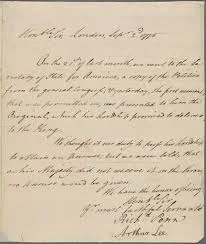 Hon'ble Sir, London, Sept. 2d. 1775
On the 21st of last month, we sent to the Secretary
of State for America, a copy of the Petition
from the general Congress, & yesterday, the first moment
that was permitted us, we presented to him the
Original, which his Lordship promised to deliver
to the King.
We thought it our duty to press his Lordship
to obtain an Answer, but we were told, that
as his Majesty did not receive it on the throne
no Answer would be given.
We have the honor of being
Sir
Yr most
Richd. Penn
Arthur Lee